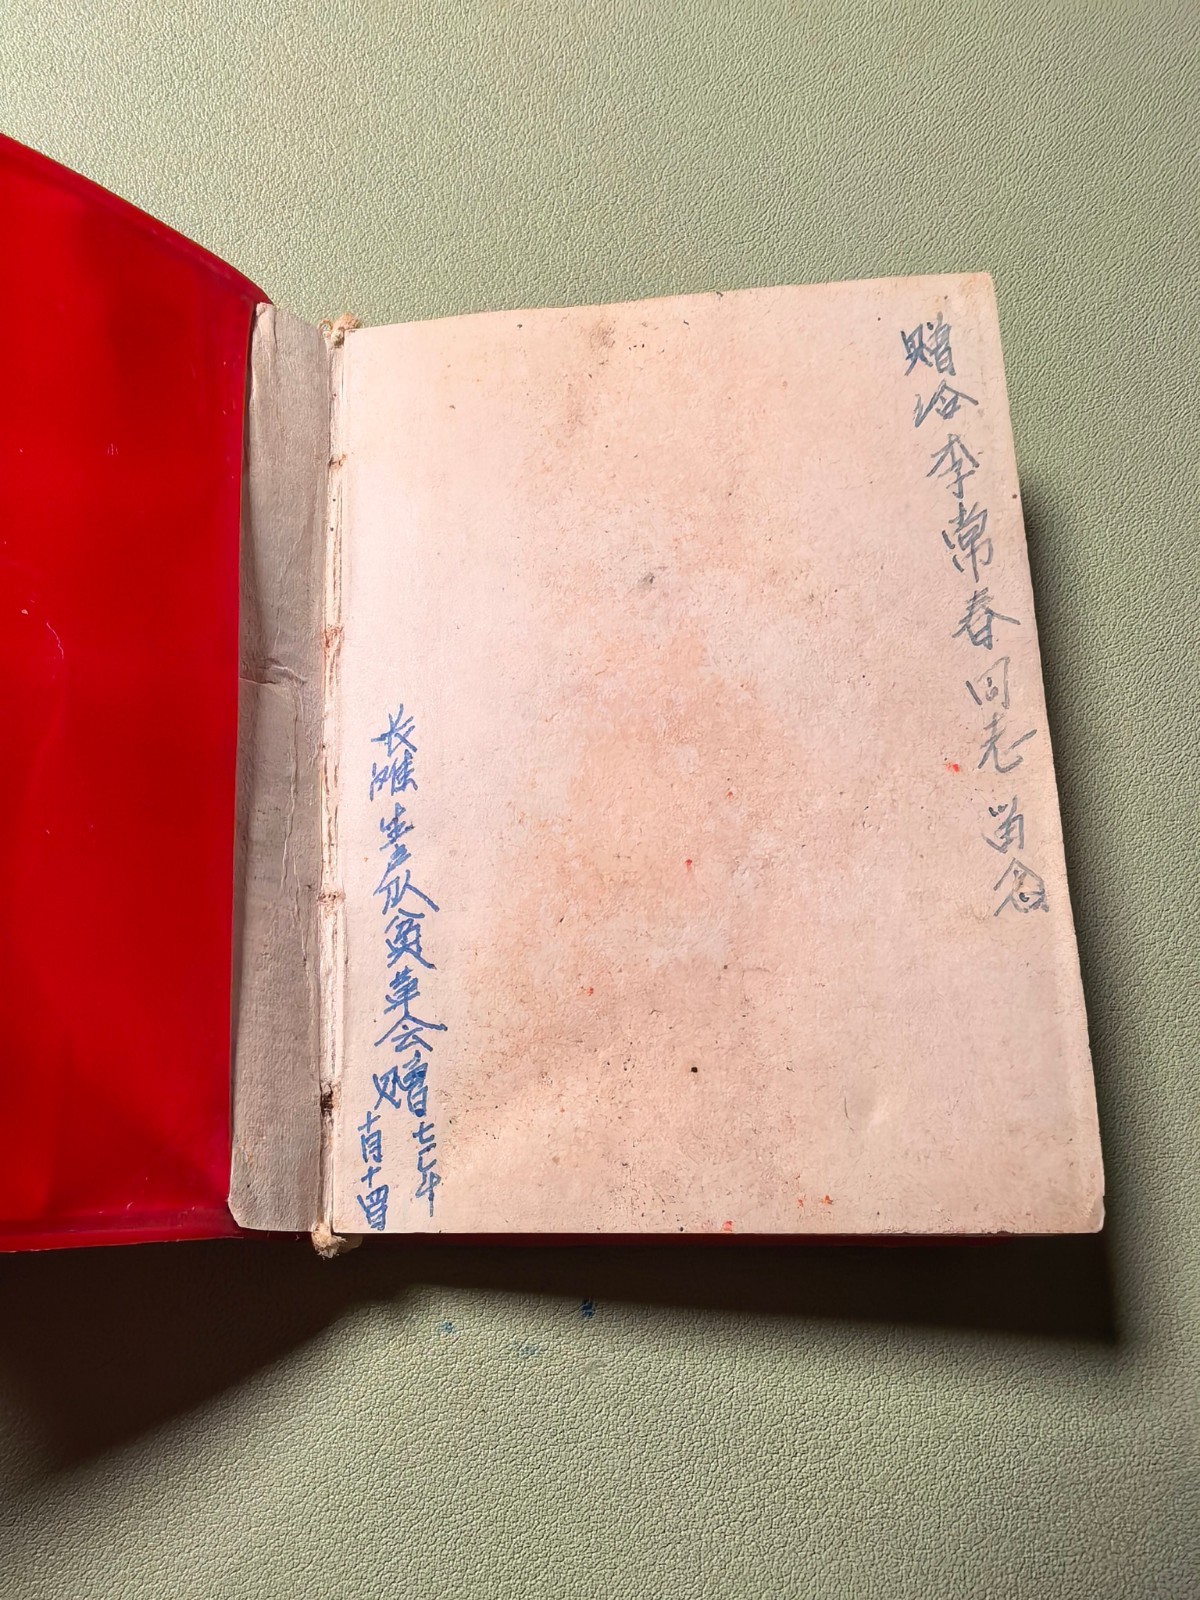 赠给李常春同志留念
长滩生产队贫革会赠
七二年
十月十四日